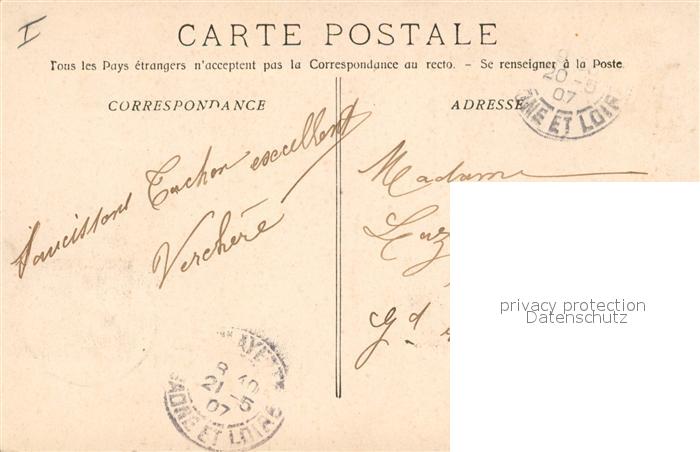 I
CARTE POSTALE
Tous les Pays étrangers n'acceptent pas la Correspondance au recto. - Se renseigner à la Poste.
CORRESPONDANCE
ADRESSE
20 -5
07
ET LOIRE
Saucissons Tachon excellent
Verchère
Madame
Gd
privacy protection
Datenschutz
8 40
21 -5
07
ET LOIRE